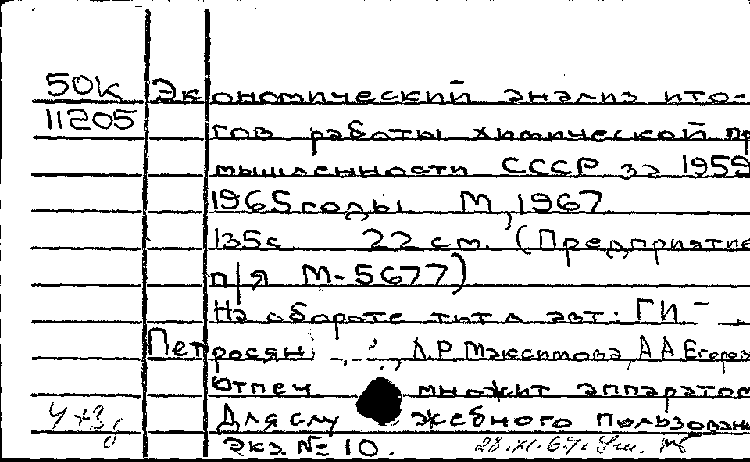 50к Экономический анализ ито-
11205 гов работы химической пр
мышленности СССР за 1959
1965 годы. М, 1967
135с 22 см. (Предприятие
п/я М-5677)
На обороте тит л авт: Г И
Петросян, Л.Р Максимова, А А Егоров
Отпеч множит аппаратом
Для служебного пользован
Экз. № 10.